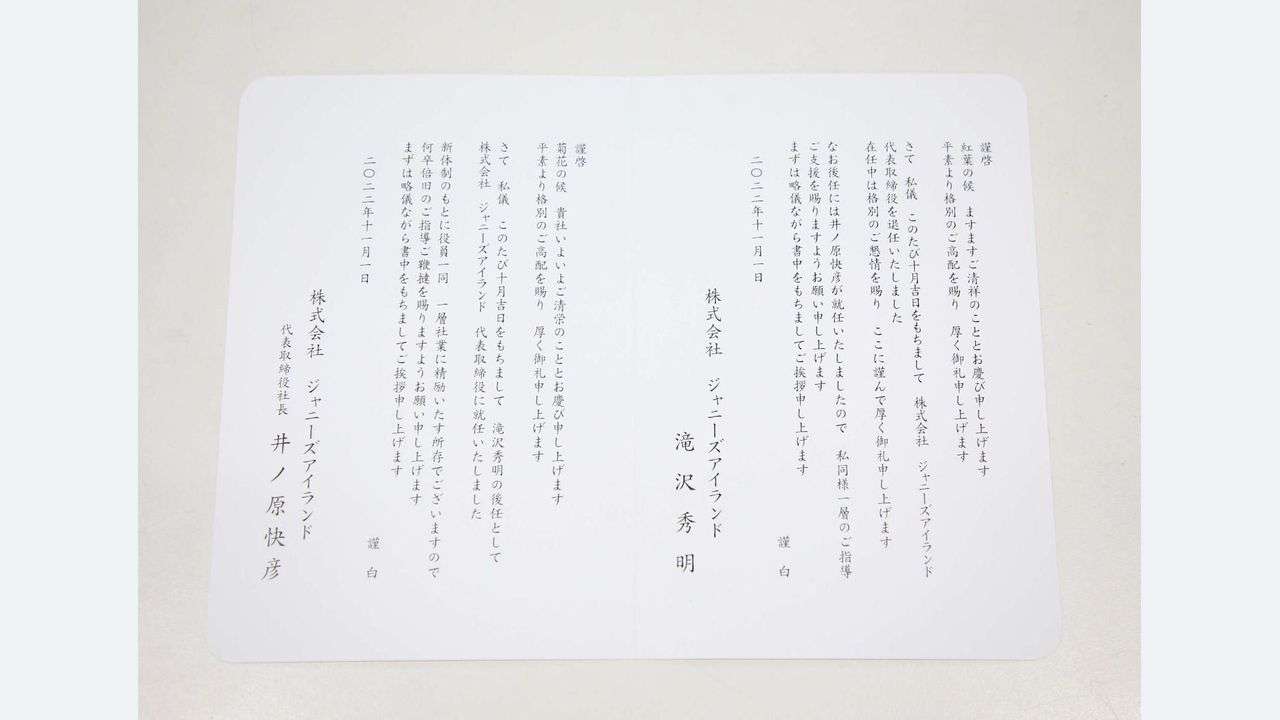 謹啓
紅葉の候　ますますご清祥のこととお慶び申し上げます
平素より格別のご高配を賜り　厚く御礼申し上げます
さて　私儀　このたび十月吉日をもちまして　株式会社　ジャニーズアイランド
代表取締役を退任いたしました
在任中は格別のご懇情を賜り　ここに謹んで厚く御礼申し上げます
なお後任には井ノ原快彦が就任いたしましたので　私同様一層のご指導
ご支援を賜りますようお願い申し上げます
まずは略儀ながら書中をもちましてご挨拶申し上げます
謹白
二〇二二年十一月一日
株式会社　ジャニーズアイランド
滝沢秀明
謹啓
菊花の候　貴社いよいよご清栄のこととお慶び申し上げます
平素より格別のご高配を賜り　厚く御礼申し上げます
さて　私儀　このたび十月吉日をもちまして　滝沢秀明の後任として
株式会社　ジャニーズアイランド　代表取締役に就任いたしました
新体制のもとに役員一同　一層社業に精励いたす所存でございますので
何卒倍旧のご指導ご鞭撻を賜りますようお願い申し上げます
まずは略儀ながら書中をもちましてご挨拶申し上げます
謹白
二〇二二年十一月一日
株式会社　ジャニーズアイランド
代表取締役社長　井ノ原快彦